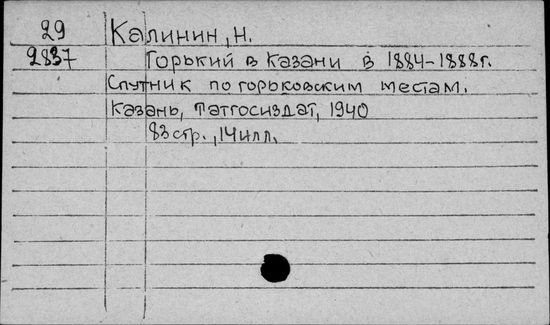 29 Калинин, Н.
2837 Горький в Казани в 1884-1888г.
Спутник по горьковским местам.
Казань, Татгосиздат, 1940
83 стр., 14 илл.